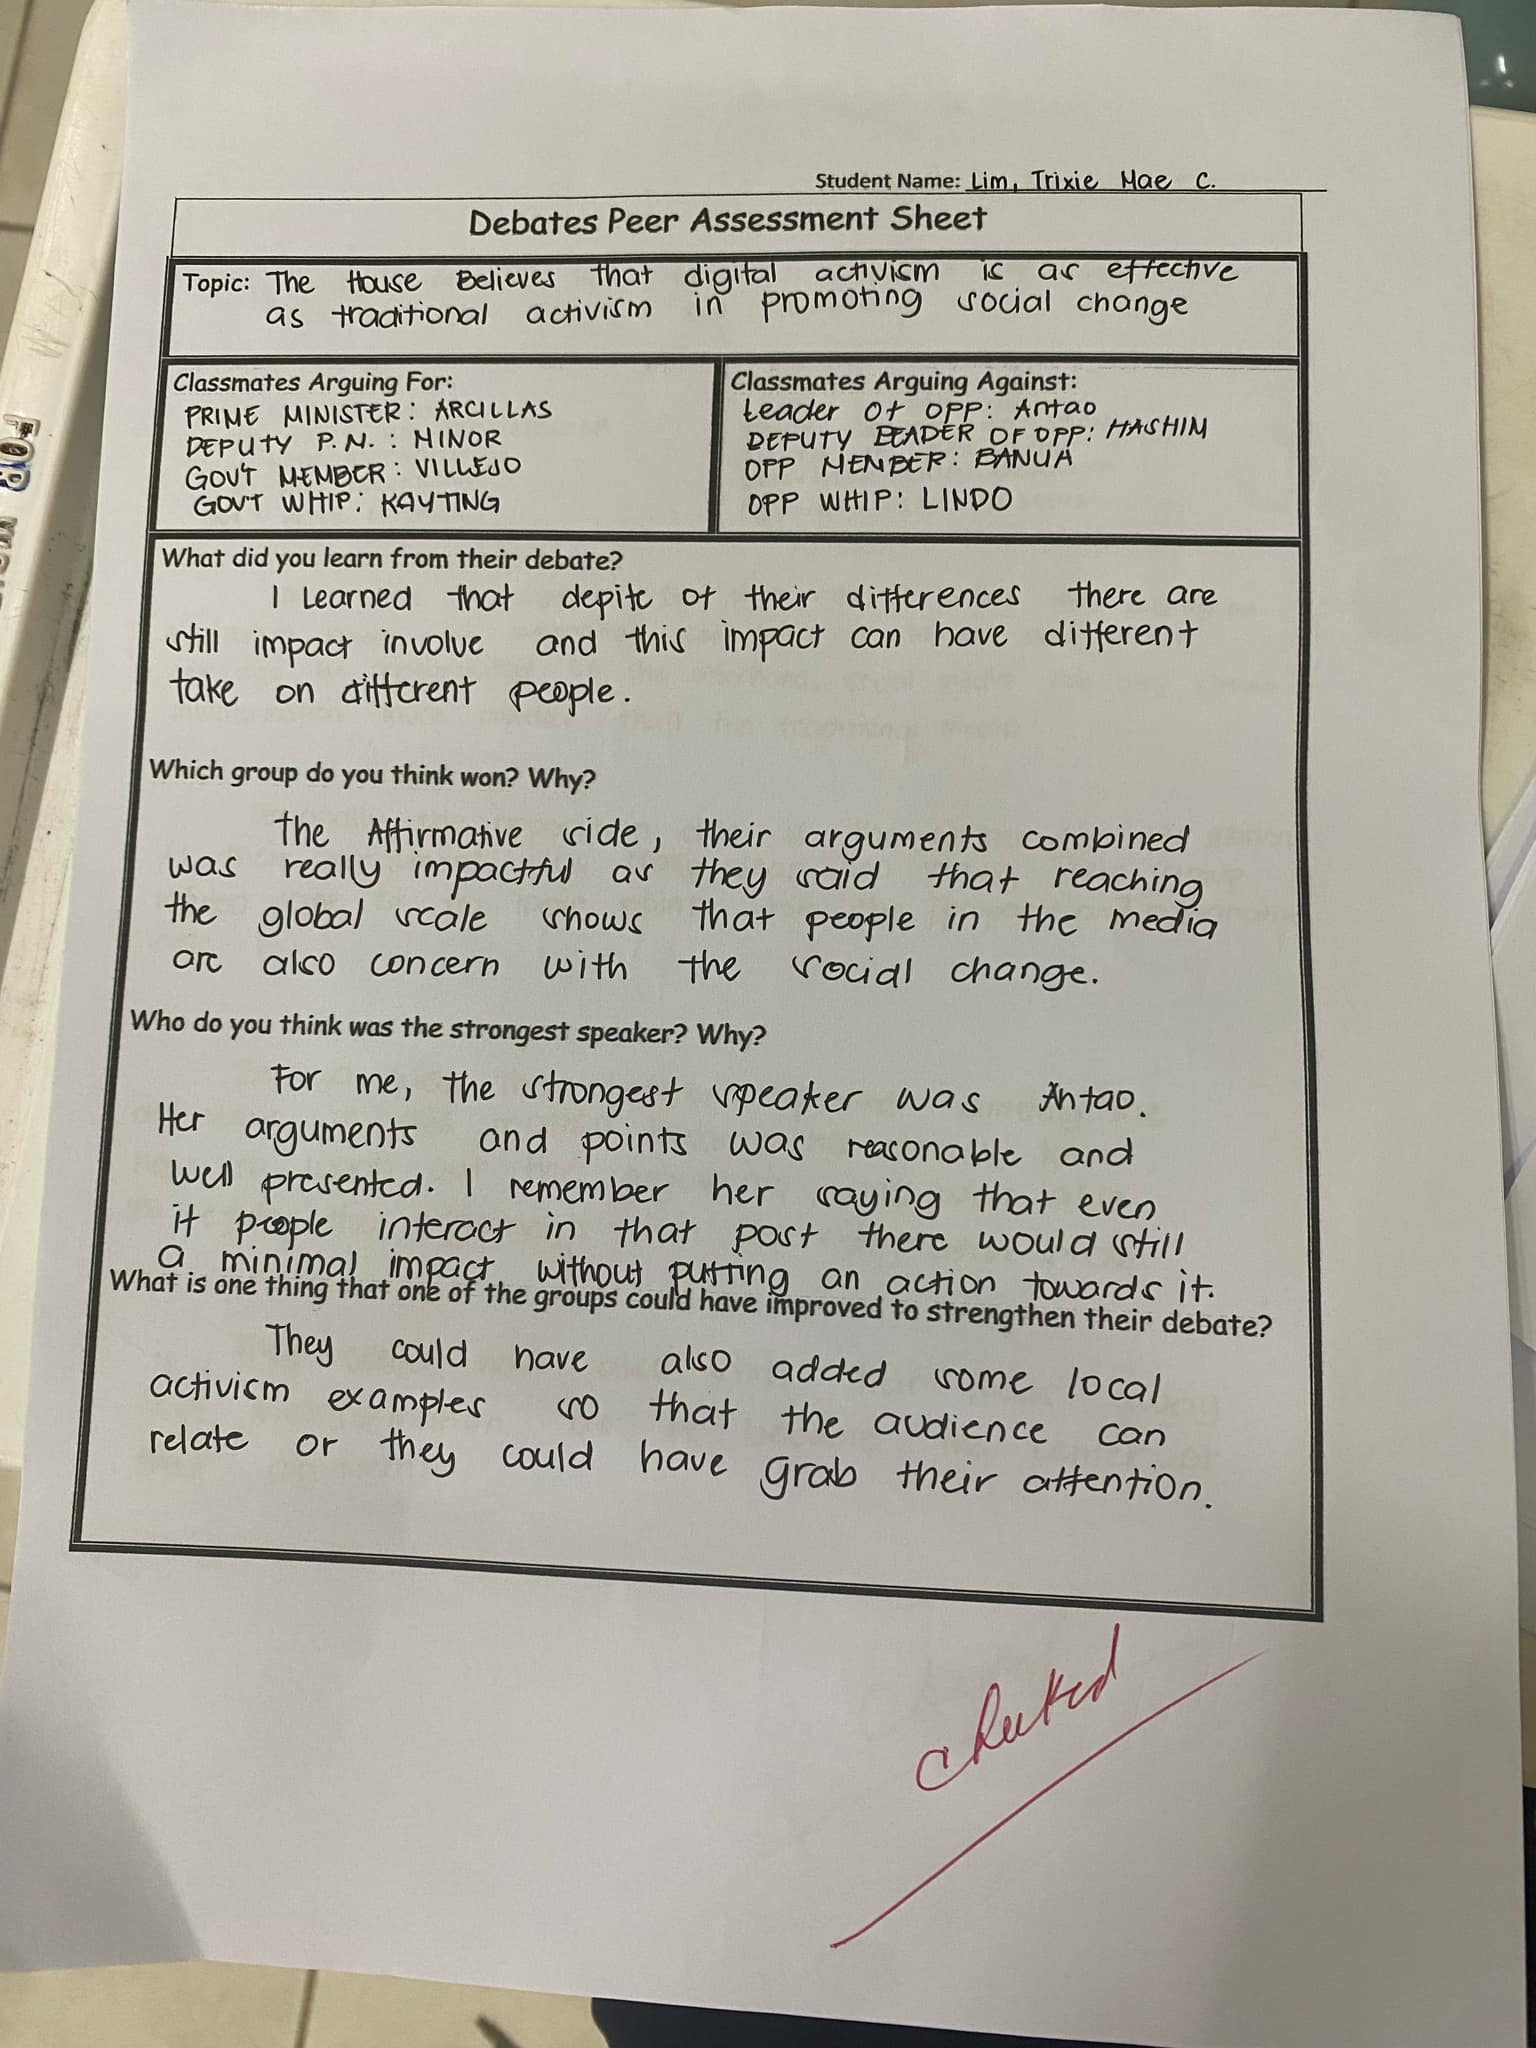 Student Name: Lim, Trixie Mae C.
Debates Peer Assessment Sheet
Topic: The House Believes that digital activism is as effective
as traditional activism in promoting social change
Classmates Arguing For:
PRIME MINISTER: ARCILLAS
DEPUTY P.M.: MINOR
GOV'T MEMBER: VILLEJO
GOV'T WHIP: KAYTING
Classmates Arguing Against:
Leader of OPP: Antao
DEPUTY LEADER OF OPP: HASHIM
OPP MEMBER: BANUA
OPP WHIP: LINDO
What did you learn from their debate?
I Learned that depite of their differences there are
still impact involve and this impact can have different
take on different people.
Which group do you think won? Why?
The Affirmative side, their arguments combined
was really impactful as they said that reaching
the global scale shows that people in the media
are also concern with the social change.
Who do you think was the strongest speaker? Why?
For me, the strongest speaker was Antao.
Her arguments and points was reasonable and
well presented. I remember her saying that even
if people interact in that post there would still
a minimal impact without putting an action towards it.
What is one thing that one of the groups could have improved to strengthen their debate?
They could have also added some local
activism examples so that the audience can
relate or they could have grab their attention.
checked